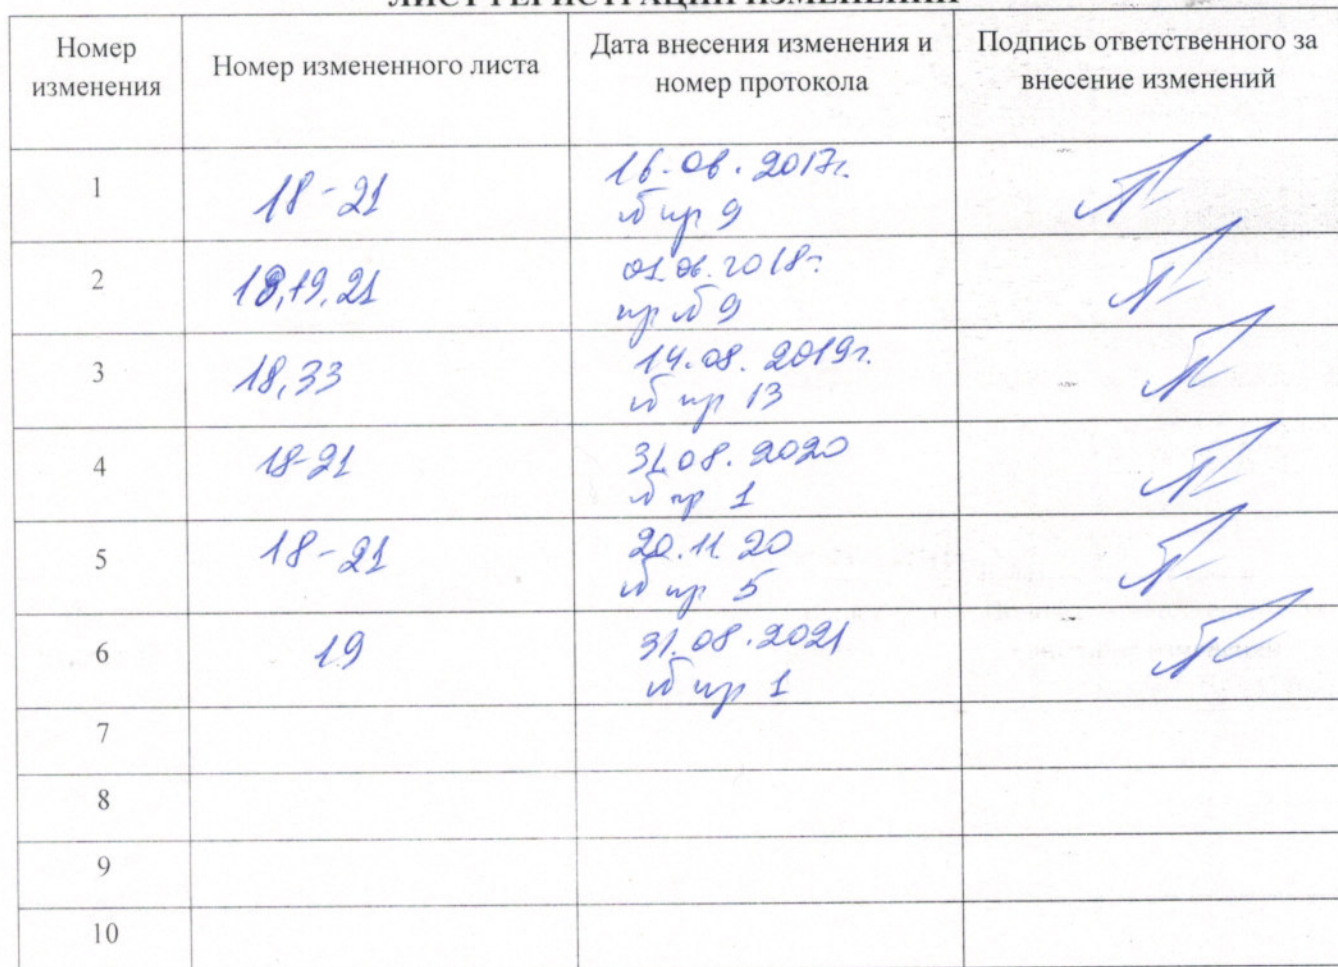 ЛИСТ РЕГИСТРАЦИИ ИЗМЕНЕНИЙ
Номер изменения
Номер измененного листа
Дата внесения изменения и номер протокола
Подпись ответственного за внесение изменений
1
18-21
16.06.2017г.
№ пр 9
2
18,19,21
01.06.2018г
пр № 9
3
18,33
14.08.2019г.
№ пр 13
4
18-21
31.08.2020
№ пр 1
5
18-21
20.11.20
№ пр 5
6
19
31.08.2021
№ пр 1
7
8
9
10